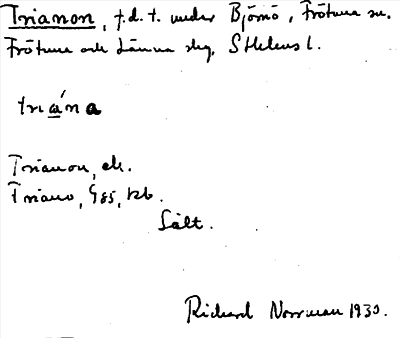 Trianon, f.d.t. under Björnö, Frötuna sn.
Frötuna och Länna skg, Sthlms l.
triána
Trianon, ek.
Triano, G85, kb.
Sält.
Richard Norrman 1930.